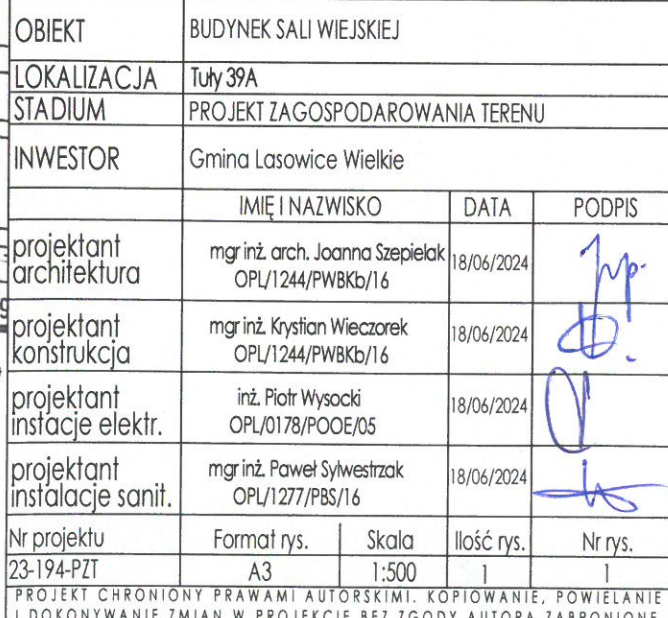 OBIEKT BUDYNEK SALI WIEJSKIEJ
LOKALIZACJA Tuły 39A
STADIUM PROJEKT ZAGOSPODAROWANIA TERENU
INWESTOR Gmina Lasowice Wielkie
IMIĘ I NAZWISKO DATA PODPIS
projektant architektura mgr inż. arch. Joanna Szepielak OPL/1244/PWBKb/16 18/06/2024
projektant konstrukcja mgr inż. Krystian Wieczorek OPL/1244/PWBKb/16 18/06/2024
projektant instacje elektr. inż. Piotr Wysocki OPL/0178/POOE/05 18/06/2024
projektant instalacje sanit. mgr inż. Paweł Sylwestrzak OPL/1277/PBS/16 18/06/2024
Nr projektu Format rys. Skala Ilość rys. Nr rys.
23-194-PZT A3 1:500 1 1
PROJEKT CHRONIONY PRAWAMI AUTORSKIMI. KOPIOWANIE, POWIELANIE
I DOKONYWANIE ZMIAN W PROJEKCIE BEZ ZGODY AUTORA ZABRONIONE